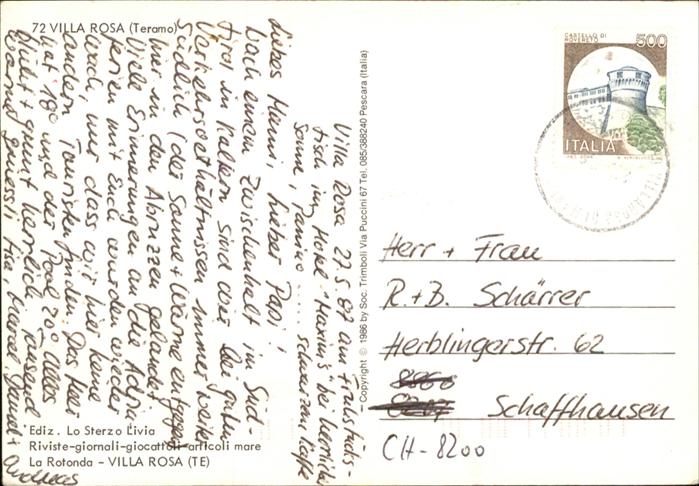 72 VILLA ROSA (Teramo)
Villa Rosa 27.5.87 am Frühstücks-
tisch im Hotel "Maxim's" bei herrlicher
Sonne, Panino ..... schwarzem Kaffe
Liebes Mammi, lieber Papi,
Nach einem Zwischenhalt im Süd-
tirol in Kaltern sind wir bei guten
Verkehrsverhältnissen immer weiter
Südlich (der Sonne + Wärme entgegen)
hier in den Abruzzen gelandet.
Viele Erinnerungen an die Adria-
ferien mit Euch wurden wieder
wach, nur dass wir hier keine
andern Touristen finden. Das Meer
hat 18° und der Pool 20°. Alles
blüht + grünt herrlich. Tausend
warme Grüssli
Andreas
Copyright © 1986 by Soc. Trimboli Via Puccini 67 Tel. 085/388240 Pescara (Italia)
CASTELLO DI
ROVERETO
500
ITALIA
Herr + Frau
R. + B. Schärrer
Herblingerstr. 62
Schaffhausen
CH-8200
Ediz. Lo Sterzo Livia
Riviste-giornali-giocattoli-articoli mare
La Rotonda - VILLA ROSA (TE)